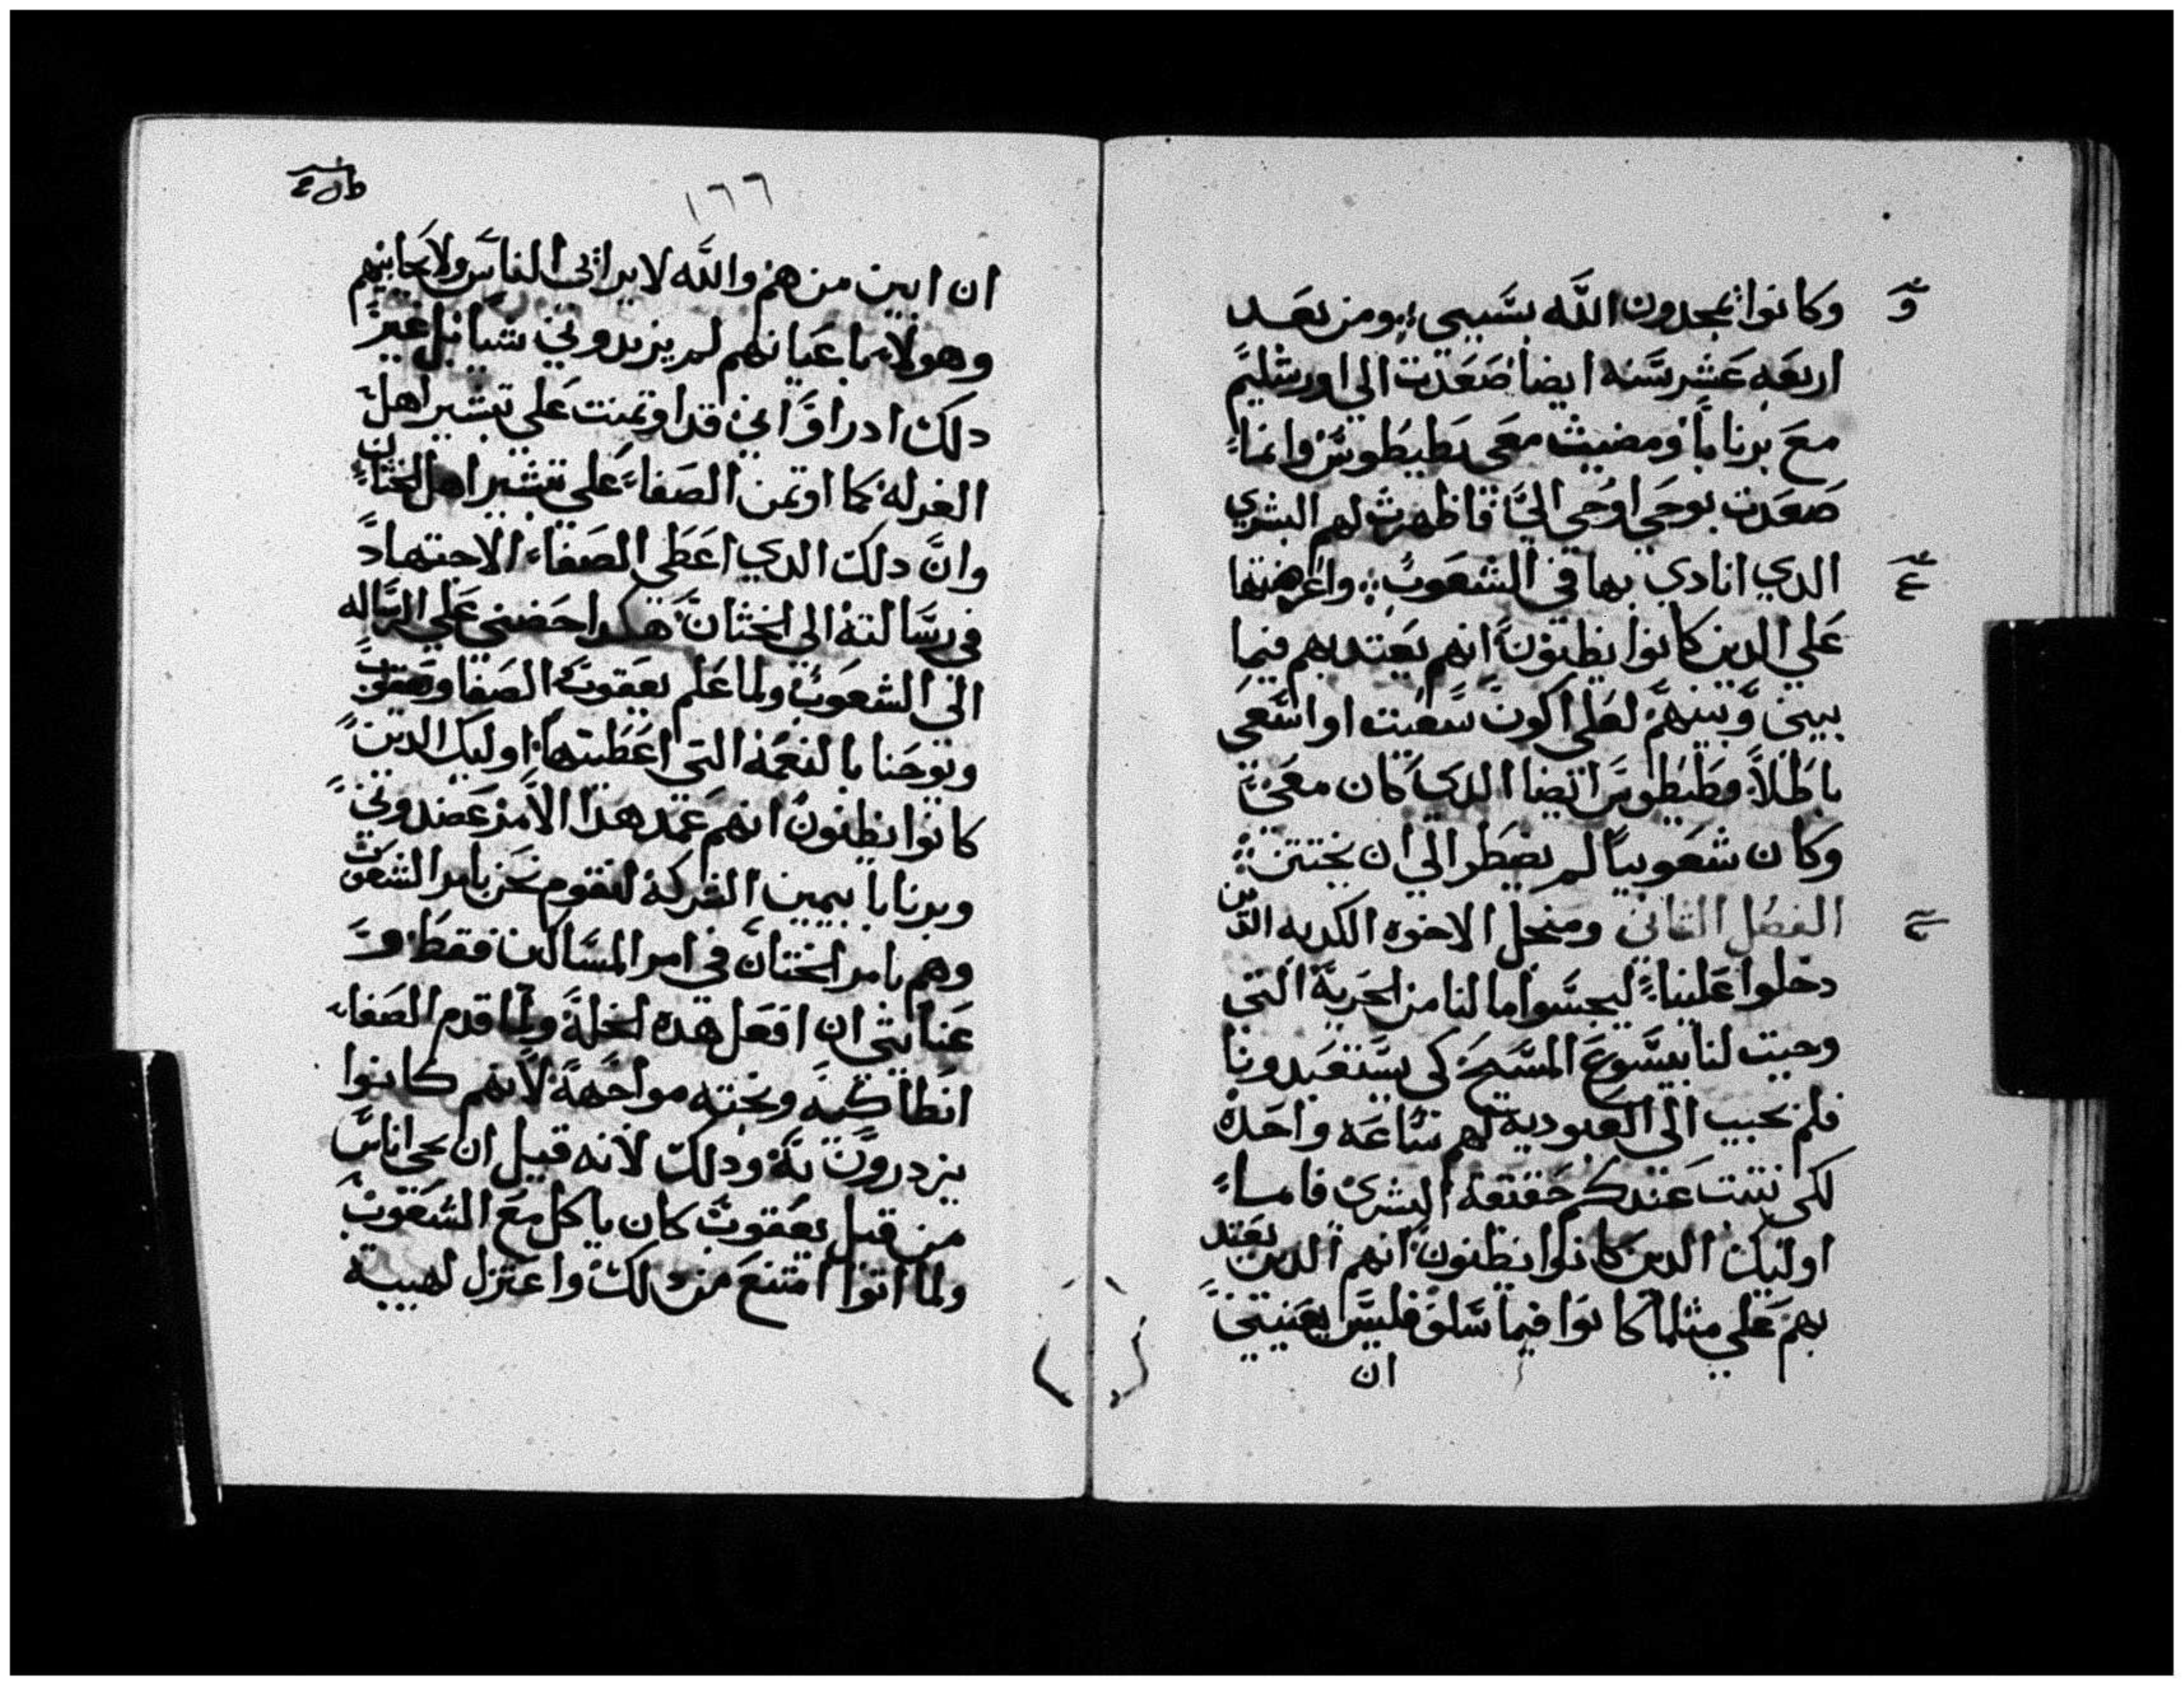 وكانوا يمجدون الله بسببي ومن بعد
اربعه عشر سنه ايضا صعدت الي اورشليم
مع برنابا ومضيت معي بطيطوس وانما
صعدت بوحي اوحي الي فاظهرت لهم البشري
الدي انادي بها في الشعوب واعرضتها
علي الدين كانوا يظنون انهم يعتد بهم فيما
بيني وبينهم لعلي اكون سعيت او اسعي
باطلا وطيطوس ايضا الدي كان معي
وكان شعوبيا لم يضطر الي ان يختتن
الفصل الثاني ومن اجل الاخوه الكدبه الدين
دخلوا علينا ليجسوا ما لنا من الحرية التي
وجبت لنا بيسوع المسيح كي يستعبدونا
فلم نجيب الي العبودية لهم ساعه واحده
لكي تثبت عندكم حقيقة البشري فاما
اوليك الدين كانوا يظنون انهم الدين يعتد
بهم علي مثلما كانوا فيما سلف فليس يعنيني
ان
١٦٦
ان ابين من هم والله لا يرائي الناس ولا يحابيهم
وهولاء باعيانهم لم يزيدوني شيا بل غير
دلك اد راوا اني قد اوتمنت علي تبشير اهل
الغرله كما اوتمن الصفاء علي تبشير اهل الختان
وان دلك الدي اعطي الصفاء الاجتهاد
في رسالته الي الختان هكدا حضني علي الرساله
الي الشعوب ولما علم يعقوب الصفا
ويوحنا بالنعمة التي اعطيتها اوليك الدين
كانوا يظنون انهم عمد هذا الامر عضدوني
وبرنابا بيمين الشركة لنقوم نحن بامر الشعوب
وهم بامر الختان في امر المسالين فقط
عناني ان افعل هده الخلة ولما قدم الصفاء
انطاكية وبخته مواجهة لانهم كانوا
يزدرون به ودلك لانه قبل ان يجي اناس
من قبل يعقوب كان ياكل مع الشعوب
ولما اتوا امتنع من دلك واعتزل لهيبة